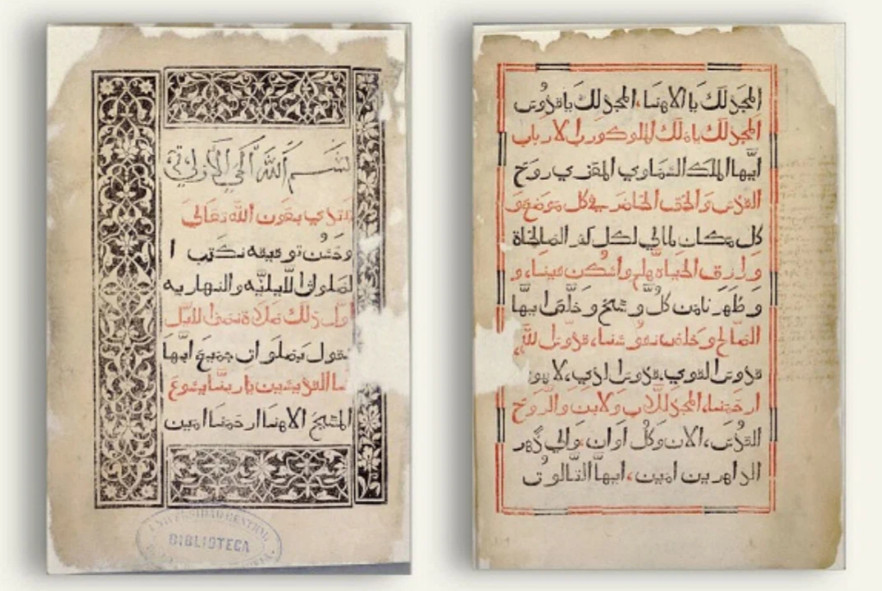 بسم الله الحي الازلي
نبتدي بعون الله تعالى
وحسن توفيقه نكتب ا
لصلوات الليليه والنهاريه
اول ذلك صلاة نصف الليل
نقول بصلوات جميع ابها
تنا القديسين ياربنا يسوع
المسيح الاهنا ارحمنا امين
UNIVERSIDAD CENTRAL
BIBLIOTECA
المجد لك يا الاهنا، المجد لك يا قدوس
المجد لك يا ملك الملوك ورب الارباب
ايها الملك السماوي المعزي روح
القدس والحق الحاضر في كل موضع و
كل مكان مالي لكل كنز الصالحاة
ورازق الحياة هلم واسكن فينا، و
وطهرنا من كل وسخ وخلص ايها
الصالح وخلص نفوسنا، قدوس لله
قدوس القوي، قدوس الذي، لا يموت
ارحمنا، المجد للاب ولابن والروح
القدس، الان وكل اوان، والي دهر
الداهرين امين، ايها الثالوث